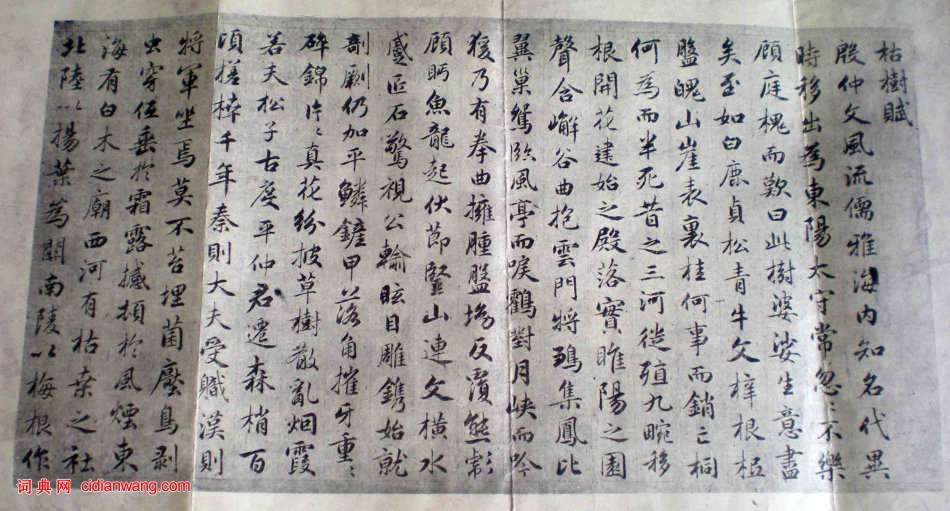 枯樹賦
殷仲文風流儒雅海内知名代異
時移出為東陽太守常忽〻不樂
顧庭槐而歎曰此樹婆娑生意盡
矣至如白鹿貞松青牛文梓根柢
盤魄山崖表裏桂何事而銷亡桐
何為而半死昔之三河徙殖九畹移
根開花建始之殿落實睢陽之園
聲含嶰谷曲抱雲門將鵄集鳳比
翼巢鴛臨風亭而唳鶴對月峽而吟
猨乃有拳曲擁腫盤坳反覆熊彪
顧眄魚龍起伏節豎山連文橫水
蹙匠石驚視公輸眩目雕鐫始就
剞劂仍加平鱗鏟甲落角摧牙重〻
碎錦片〻真花紛披草樹散亂烟霞
若夫松子古度平仲君遷森梢百
頃槎枿千年秦則大夫受職漢則
將軍坐焉莫不苔埋菌壓鳥剥
虫穿低垂於霜露撼頓於風煙東
海有白木之廟西河有枯桑之社
北陸以楊葉為關南陵以梅根作
词典网 cidianwang.com